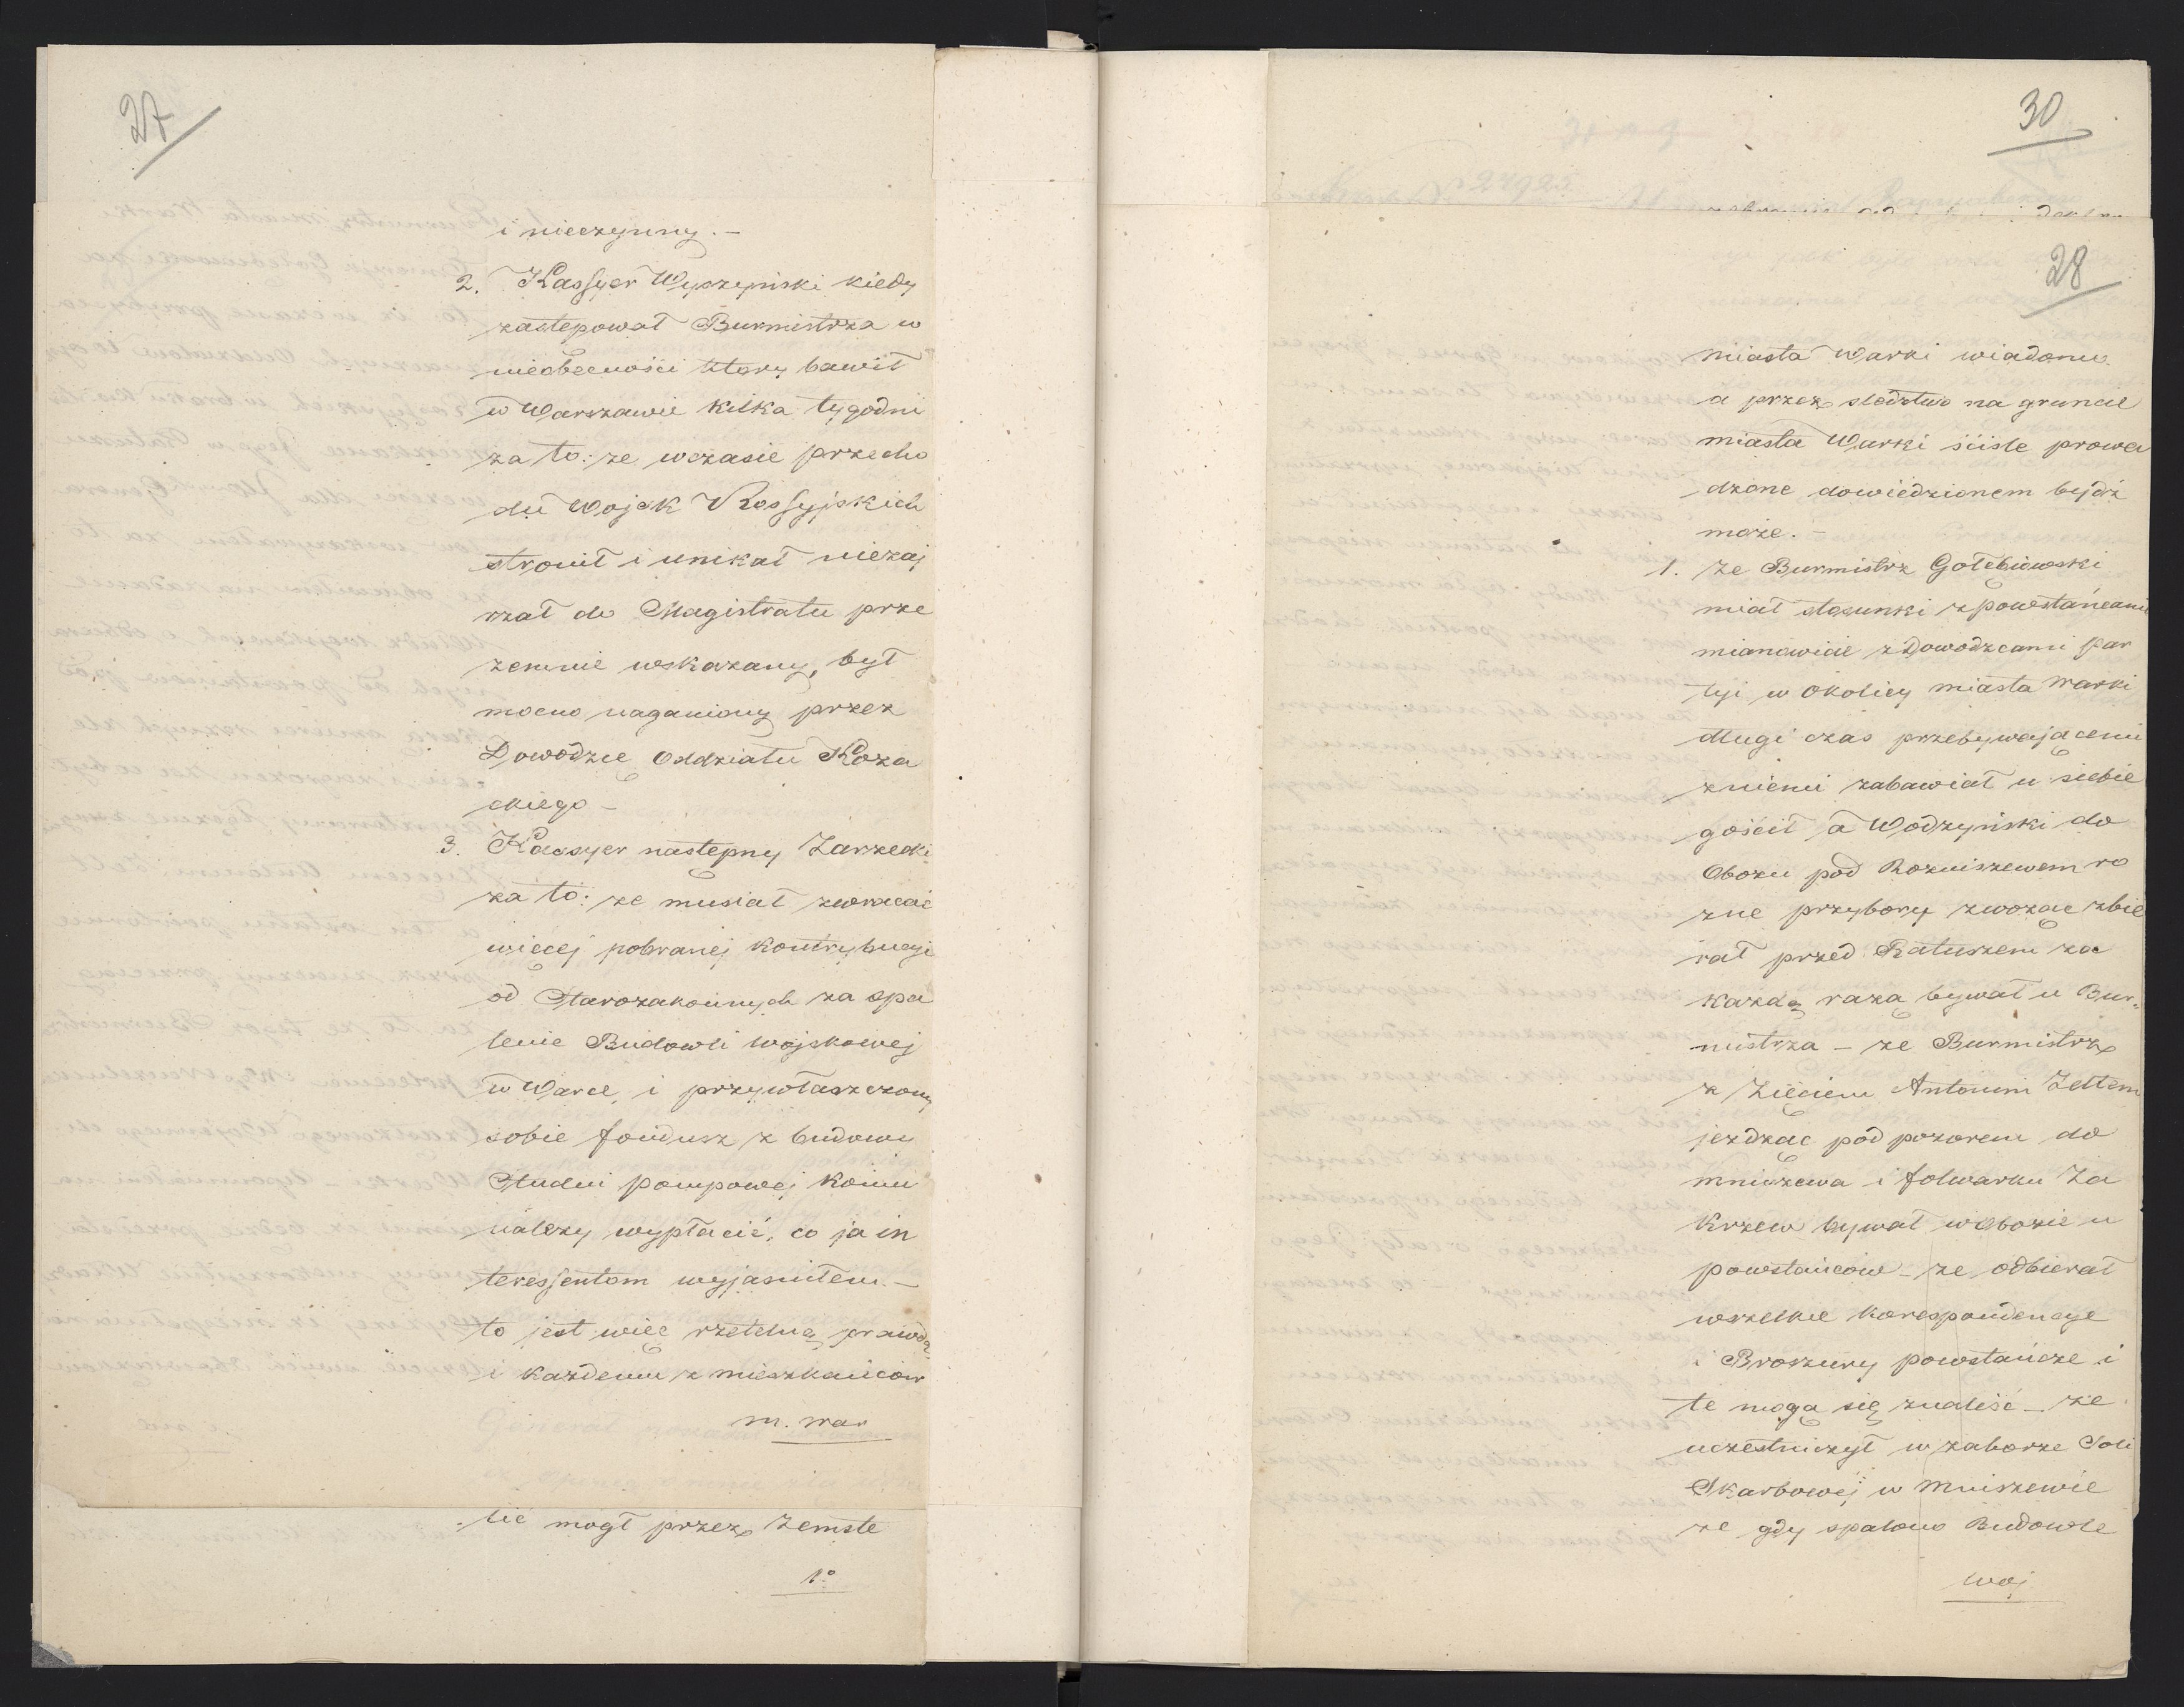 27
i nieczynny. -
2. Kassyer Wyszyński kiedy
zastępował Burmistrza w
nieobecności który bawił
w Warszawie kilka tygodni
za to: ze wczasie przecho
du Wojsk Rossyjskich
stronił i unikał niezaj
rzał do Magistratu prze
zemnie wskazany, był
mocno naganiony przez
Dowodzcę Oddziału Koza
ckiego -
3. Kassyer następny Zarzecki
za to: ze musiał zwracać
więcej pobranej kontrybucyi
od Starozakonnych za spa
lenie Budowli wojskowej
w Warce, i przywłaszczony
sobie fundusz z budowy
Studni pompowej komu
należy wypłacić, co ja in
teressentom wyjasniłem. -
to jest więc rzetelną prawdą
i kazdemu z mieszkańców
m. war
lić mógł przez zemste
1°
30
28
miasta Warki wiadomo
a przez sledztwo na gruncie
miasta Warki ściśle prowa
dzone dowiedzionem bydź
może. -
1. ze Burmistrz Gołębiowski
miał stosunki z powstańcami
mianowicie z Dowodzcami par
tyi w okolicy miasta Warki
długi czas przebywającemi
zniemi zabawiał u siebie
gościł a Wodzyński do
Obozu pod Rozniszewem ro
zne przybory zwożąc zbie
rał przed Ratuszem za
kazdą razą bywał u Bur=
mistrza - ze Burmistrz
z Zięciem Antonim Zettem
jezdząc pod pozorem do
Mniszewa i folwarku Za
krzew bywał w obozie u
powstańców - ze odbierał
wszelkie korespondencye
i Broszury powstańcze i
te mogą się znaleść - ze
uczestniczył w zaborze Soli
Skarbowej w Mniszewie
ze gdy spalono Budowle
woj